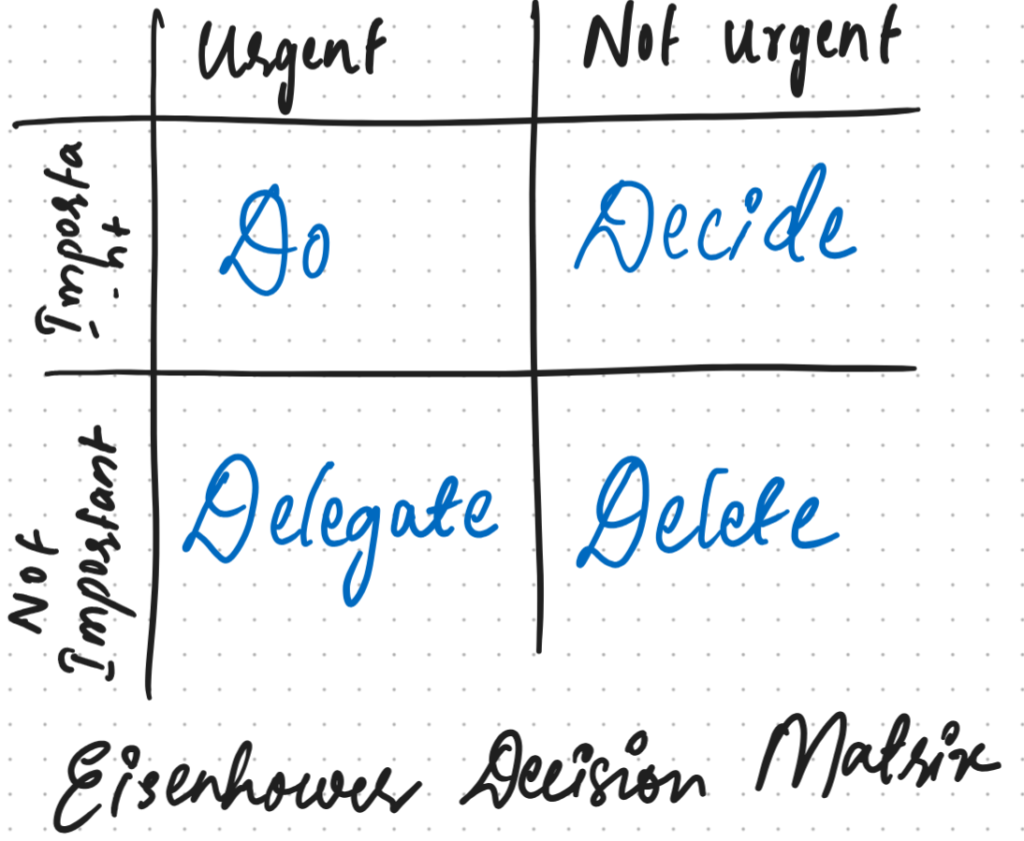 Urgent Not urgent
Importa
-nt
Do Decide
Not
Important
Delegate Delete
Eisenhower Decision Matrix